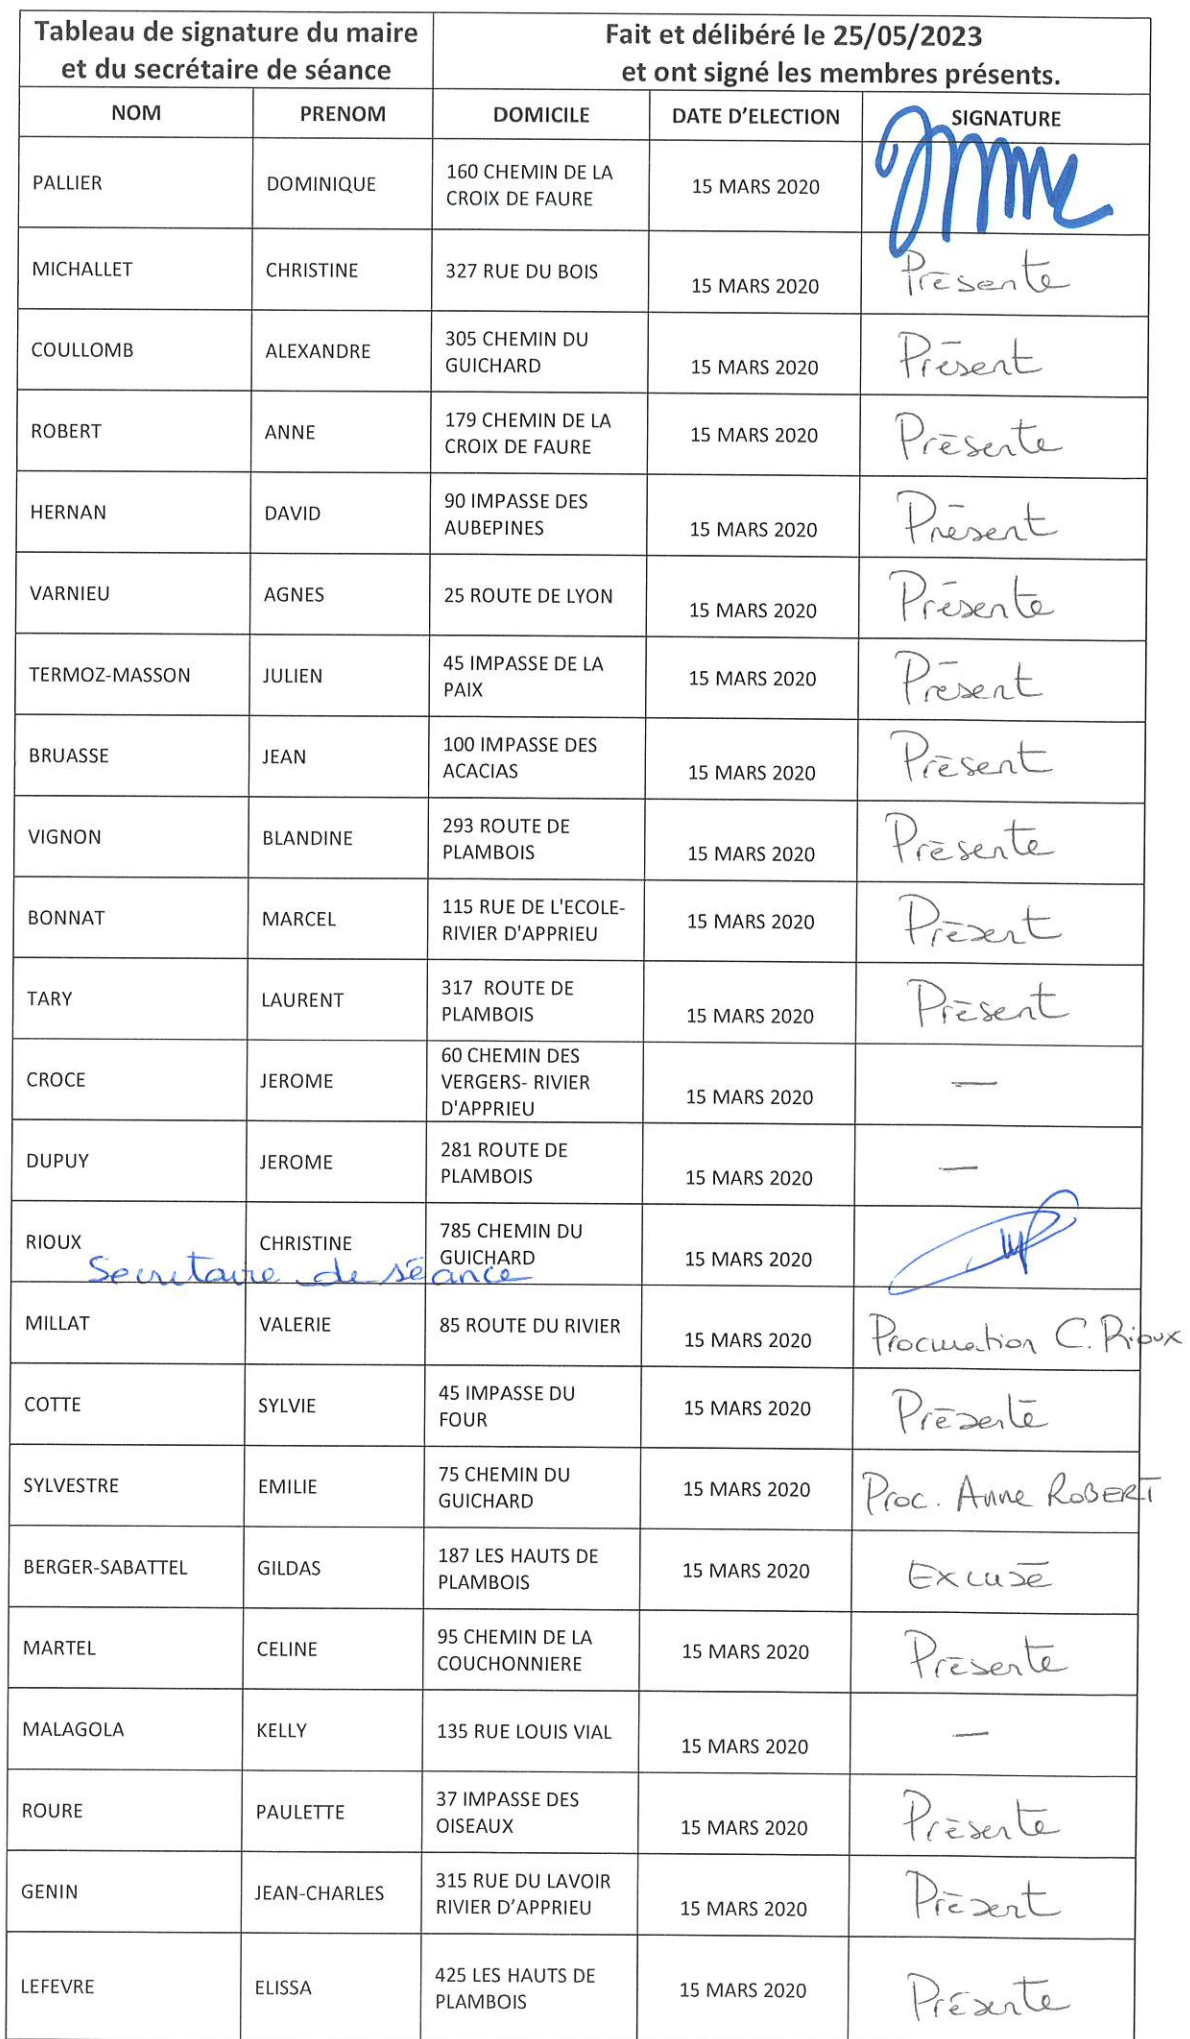 Tableau de signature du maire
et du secrétaire de séance
Fait et délibéré le 25/05/2023
et ont signé les membres présents.
NOM PRENOM DOMICILE DATE D'ELECTION SIGNATURE
PALLIER DOMINIQUE 160 CHEMIN DE LA
CROIX DE FAURE 15 MARS 2020
MICHALLET CHRISTINE 327 RUE DU BOIS 15 MARS 2020 Présente
COULLOMB ALEXANDRE 305 CHEMIN DU
GUICHARD 15 MARS 2020 Présent
ROBERT ANNE 179 CHEMIN DE LA
CROIX DE FAURE 15 MARS 2020 Présente
HERNAN DAVID 90 IMPASSE DES
AUBEPINES 15 MARS 2020 Présent
VARNIEU AGNES 25 ROUTE DE LYON 15 MARS 2020 Présente
TERMOZ-MASSON JULIEN 45 IMPASSE DE LA
PAIX 15 MARS 2020 Présent
BRUASSE JEAN 100 IMPASSE DES
ACACIAS 15 MARS 2020 Présent
VIGNON BLANDINE 293 ROUTE DE
PLAMBOIS 15 MARS 2020 Présente
BONNAT MARCEL 115 RUE DE L'ECOLE-
RIVIER D'APPRIEU 15 MARS 2020 Présent
TARY LAURENT 317 ROUTE DE
PLAMBOIS 15 MARS 2020 Présent
CROCE JEROME 60 CHEMIN DES
VERGERS- RIVIER
D'APPRIEU 15 MARS 2020 —
DUPUY JEROME 281 ROUTE DE
PLAMBOIS 15 MARS 2020 —
RIOUX CHRISTINE 785 CHEMIN DU
GUICHARD 15 MARS 2020
Secrétaire de séance
MILLAT VALERIE 85 ROUTE DU RIVIER 15 MARS 2020 Procuration C. Rioux
COTTE SYLVIE 45 IMPASSE DU
FOUR 15 MARS 2020 Présente
SYLVESTRE EMILIE 75 CHEMIN DU
GUICHARD 15 MARS 2020 Proc. Anne ROBERT
BERGER-SABATTEL GILDAS 187 LES HAUTS DE
PLAMBOIS 15 MARS 2020 Excusé
MARTEL CELINE 95 CHEMIN DE LA
COUCHONNIERE 15 MARS 2020 Présente
MALAGOLA KELLY 135 RUE LOUIS VIAL 15 MARS 2020 —
ROURE PAULETTE 37 IMPASSE DES
OISEAUX 15 MARS 2020 Présente
GENIN JEAN-CHARLES 315 RUE DU LAVOIR
RIVIER D'APPRIEU 15 MARS 2020 Présent
LEFEVRE ELISSA 425 LES HAUTS DE
PLAMBOIS 15 MARS 2020 Présente